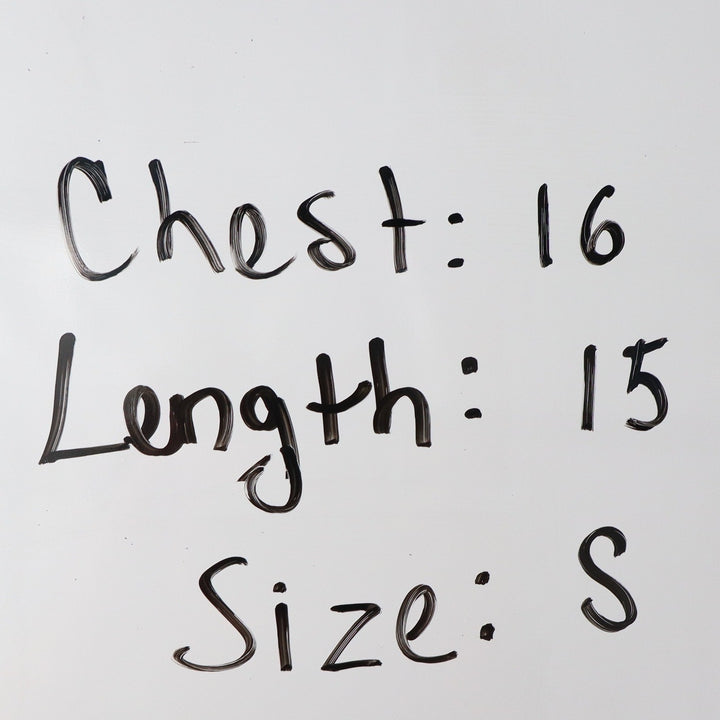 Chest: 16
Length: 15
Size: S